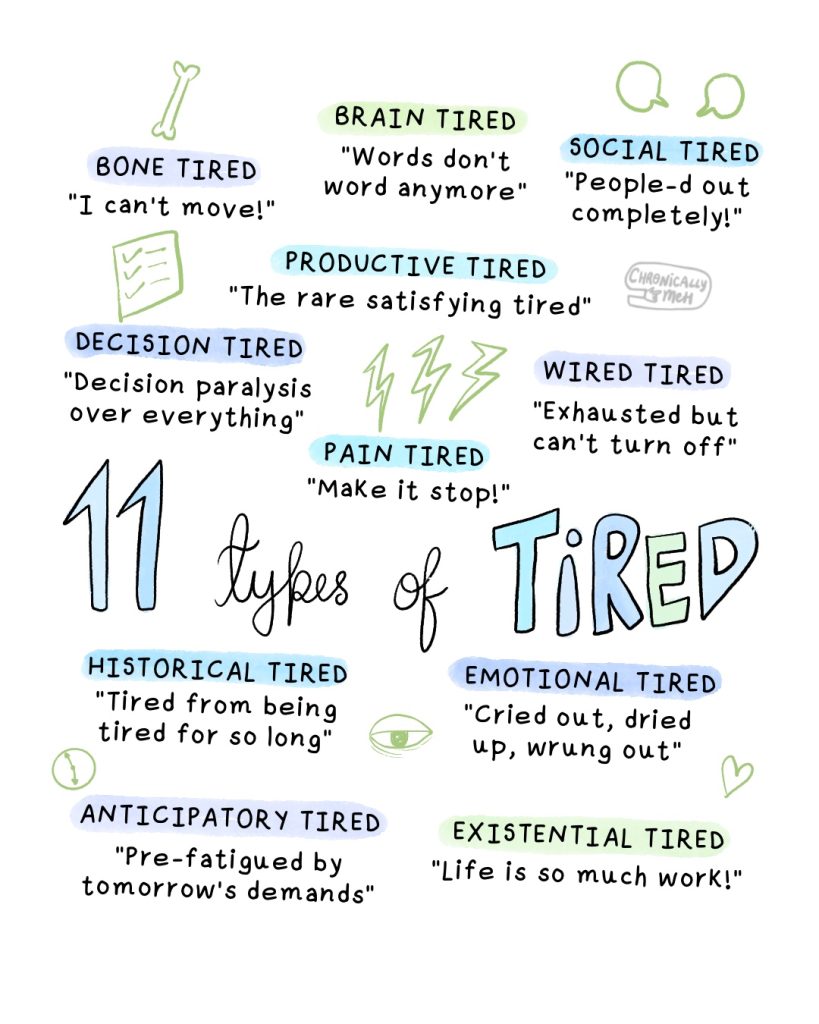 BRAIN TIRED
"Words don't
word anymore"
BONE TIRED
"I can't move!"
SOCIAL TIRED
"People-d out
completely!"
PRODUCTIVE TIRED
"The rare satisfying tired"
CHRONICALLY
MEH
DECISION TIRED
"Decision paralysis
over everything"
WIRED TIRED
"Exhausted but
can't turn off"
PAIN TIRED
"Make it stop!"
11 types of TIRED
HISTORICAL TIRED
"Tired from being
tired for so long"
EMOTIONAL TIRED
"Cried out, dried
up, wrung out"
ANTICIPATORY TIRED
"Pre-fatigued by
tomorrow's demands"
EXISTENTIAL TIRED
"Life is so much work!"